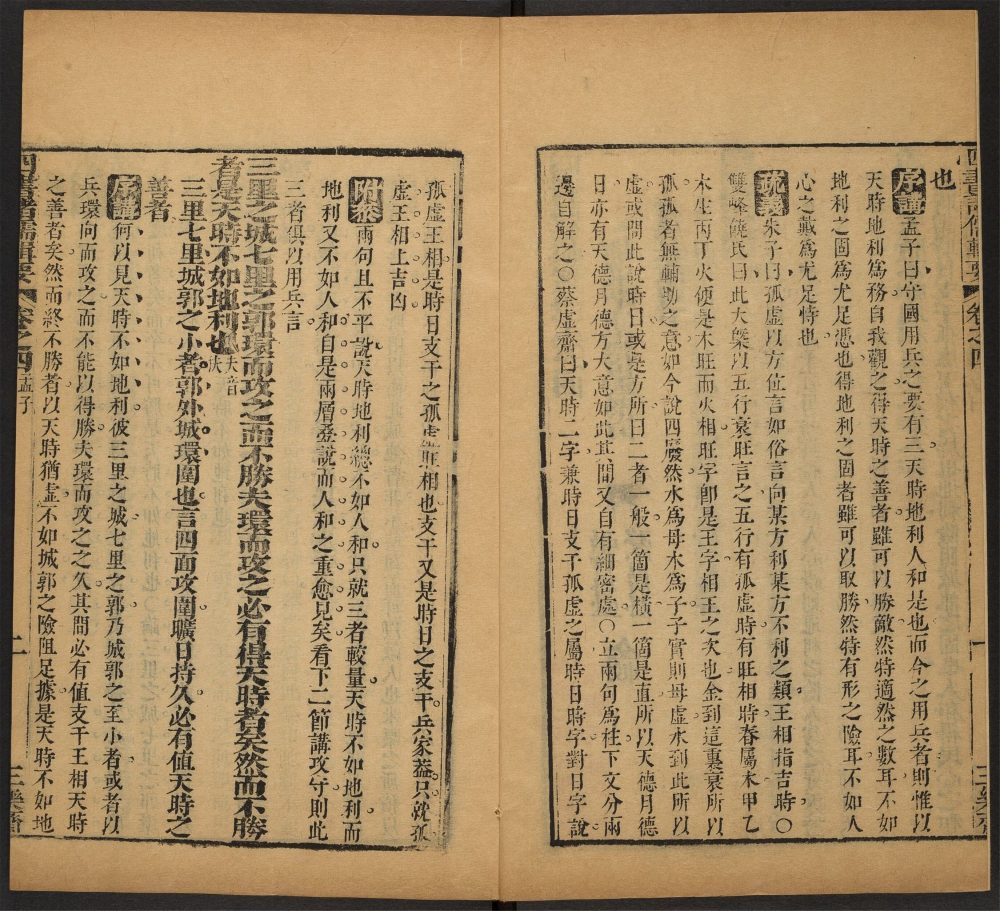 四書諸儒輯要 卷之四
也
序講 孟子曰守國用兵之要有三天時地利人和是也而今之用兵者則惟以
天時地利為務自我觀之得天時之善者雖可以勝敵然特適然之數耳不如
地利之固為尤足憑也得地利之固者雖可以取勝然特有形之險耳不如人
心之戴為尤足恃也
疏義 朱子曰孤虛以方位言如俗言向某方利某方不利之類王相指吉時○
雙峰饒氏曰此大槩以五行衰旺言之五行有孤虛時有旺相時春屬木甲乙
木生丙丁火便是木旺而火相旺字卽是王字相王之次也金到這裏衰所以
孤孤者無輔助之意如今說四廢然水為母木為子子實則母虛水到此所以
虛或問此說時日或是方所曰二者一般一箇是橫一箇是直所以天德月德
日亦有天德月德方大意如此其間又自有細密處○立兩句為柱下文分兩
邊自解之○蔡虛齋曰天時二字兼時日支干孤虛之屬時日時字對日字說
孤虛王相是時日支干之孤虛旺相也支干又是時日之支干兵家葢只就孤
虛王相上吉凶
附叅 兩句且不平說天時地利總不如人和只就三者較量天時不如地利而
地利又不如人和自是兩層疊說而人和之重愈見矣看下二節講攻守則此
三者俱以用兵言
三里之城七里之郭環而攻之而不勝夫環而攻之必有得天時者矣然而不勝
者是天時不如地利也夫音扶
三里七里城郭之小者郭外城環圍也言四面攻圍曠日持久必有値天時之
善者
序講 何以見天時不如地利彼三里之城七里之郭乃城郭之至小者或者以
兵環向而攻之而不能以得勝夫環而攻之之久其間必有値支干王相天時
之善者矣然而終不勝者以天時猶虛不如城郭之險阻足據是天時不如地
四書諸儒輯要 卷之四 孟子 二 三樂齋